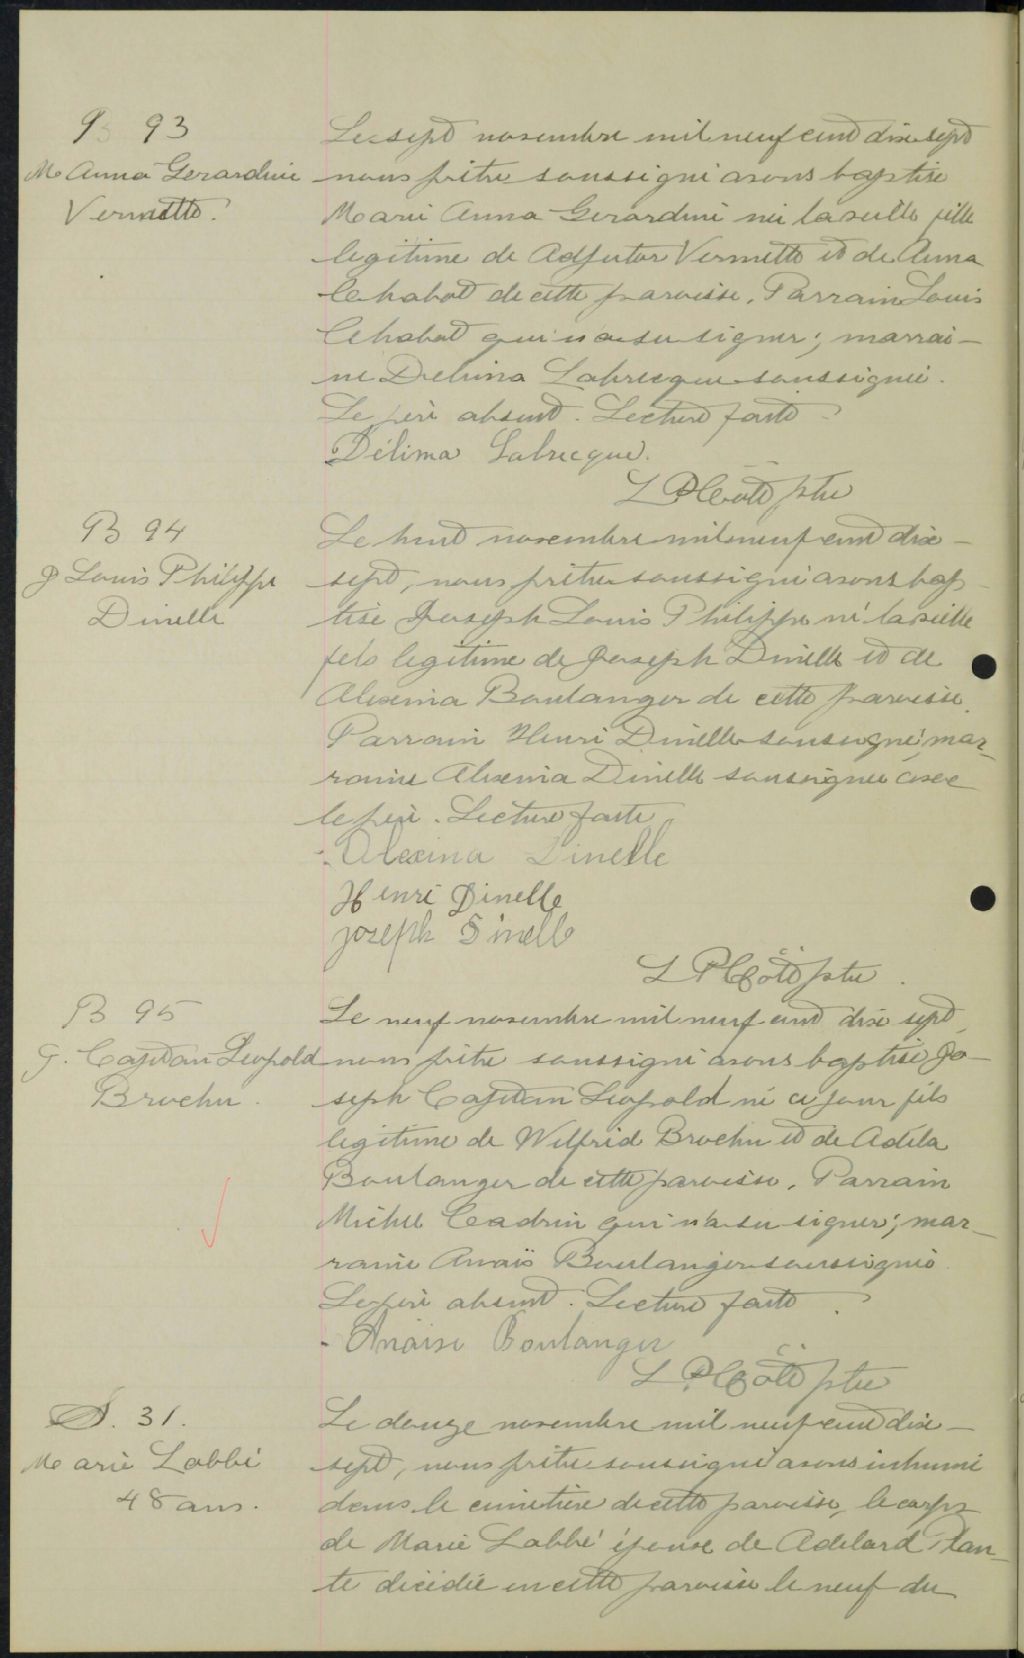 B 93
M Anna Gerardine
Vermette.
Le sept novembre mil neuf cent dix sept
nous prêtre soussigné avons baptisé
Marie Anna Gerardine née la veille fille
legitime de Adjutor Vermette et de Anna
Chabot de cette paroisse. Parrain Louis
Chabot qui n'a su signer; marrai-
ne Delima Labrecque soussignée.
Le père absent. Lecture faite
Délima Labrecque.
L P Côté ptre
B 94
J Louis Philippe
Dinelle
Le huit novembre mil neuf cent dix-
sept, nous prêtre soussigné avons bap-
tisé Joseph Louis Philippe né la veille
fils legitime de Joseph Dinelle et de
Alexina Boulanger de cette paroisse.
Parrain Henri Dinelle soussigné; mar-
raine Alexina Dinelle soussignée avec
le père. Lecture faite
Alexina Dinelle
Henri Dinelle
Joseph Dinelle
L P Côté ptre
B 95
J. Cajetan Leopold
Brochu.
Le neuf novembre mil neuf cent dix sept,
nous prêtre soussigné avons baptisé Jo-
seph Cajetan Leopold né ce jour fils
legitime de Wilfrid Brochu et de Adéla
Boulanger de cette paroisse. Parrain
Michel Cadrin qui n'a su signer; mar-
raine Anaïs Boulanger soussignée
Le père absent. Lecture faite.
Anaise Boulanger
L P Côté ptre
S. 31.
Marie Labbé
48 ans.
Le douze novembre mil neuf cent dix-
sept, nous prêtre soussigné avons inhumé
dans le cimetière de cette paroisse, le corps
de Marie Labbé épouse de Adelard Plan-
te décédée en cette paroisse le neuf du